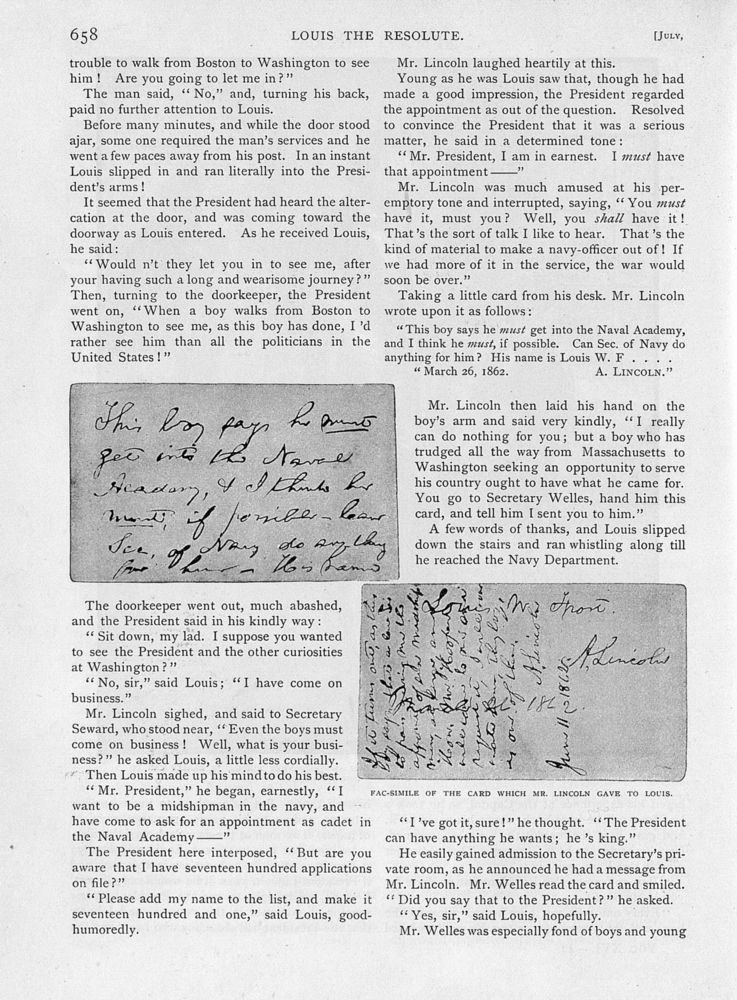 658
LOUIS THE RESOLUTE.
[JULY,
trouble to walk from Boston to Washington to see
him ! Are you going to let me in ? ”
The man said, “ No,” and, turning his back,
paid no further attention to Louis.
Before many minutes, and while the door stood
ajar, some one required the man’s services and he
went a few paces away from his post. In an instant
Louis slipped in and ran literally into the Presi-
dent’s arms !
It seemed that the President had heard the alter-
cation at the door, and was coming toward the
doorway as Louis entered. As he received Louis,
he said :
“ Would n’t they let you in to see me, after
your having such a long and wearisome journey ? ”
Then, turning to the doorkeeper, the President
went on, “ When a boy walks from Boston to
Washington to see me, as this boy has done, I ’d
rather see him than all the politicians in the
United States ! ”
This boy says he must
get into the Naval
Academy, & I think he
must, if possible – Can
Sec. of Navy do anything
for him – His name
The doorkeeper went out, much abashed,
and the President said in his kindly way :
“ Sit down, my lad. I suppose you wanted
to see the President and the other curiosities
at Washington ? ”
“ No, sir,” said Louis ; “ I have come on
business.”
Mr. Lincoln sighed, and said to Secretary
Seward, who stood near, “ Even the boys must
come on business ! Well, what is your busi-
ness ? ” he asked Louis, a little less cordially.
Then Louis made up his mind to do his best.
“ Mr. President,” he began, earnestly, “ I
want to be a midshipman in the navy, and
have come to ask for an appointment as cadet in
the Naval Academy——”
The President here interposed, “ But are you
aware that I have seventeen hundred applications
on file ? ”
“ Please add my name to the list, and make it
seventeen hundred and one,” said Louis, good-
humoredly.
Mr. Lincoln laughed heartily at this.
Young as he was Louis saw that, though he had
made a good impression, the President regarded
the appointment as out of the question. Resolved
to convince the President that it was a serious
matter, he said in a determined tone :
“ Mr. President, I am in earnest. I must have
that appointment——”
Mr. Lincoln was much amused at his per-
emptory tone and interrupted, saying, “ You must
have it, must you ? Well, you shall have it !
That ’s the sort of talk I like to hear. That ’s the
kind of material to make a navy-officer out of ! If
we had more of it in the service, the war would
soon be over.”
Taking a little card from his desk. Mr. Lincoln
wrote upon it as follows :
“ This boy says he must get into the Naval Academy,
and I think he must, if possible. Can Sec. of Navy do
anything for him ? His name is Louis W. F . . . .
“ March 26, 1862. A. LINCOLN.”
Mr. Lincoln then laid his hand on the
boy’s arm and said very kindly, “ I really
can do nothing for you ; but a boy who has
trudged all the way from Massachusetts to
Washington seeking an opportunity to serve
his country ought to have what he came for.
You go to Secretary Welles, hand him this
card, and tell him I sent you to him.”
A few words of thanks, and Louis slipped
down the stairs and ran whistling along till
he reached the Navy Department.
Louis W.
A. Lincoln
A. Lincoln
June 11 1862
FAC-SIMILE OF THE CARD WHICH MR. LINCOLN GAVE TO LOUIS.
“ I ’ve got it, sure ! ” he thought. “ The President
can have anything he wants ; he ’s king.”
He easily gained admission to the Secretary’s pri-
vate room, as he announced he had a message from
Mr. Lincoln. Mr. Welles read the card and smiled.
“ Did you say that to the President ? ” he asked.
“ Yes, sir,” said Louis, hopefully.
Mr. Welles was especially fond of boys and young